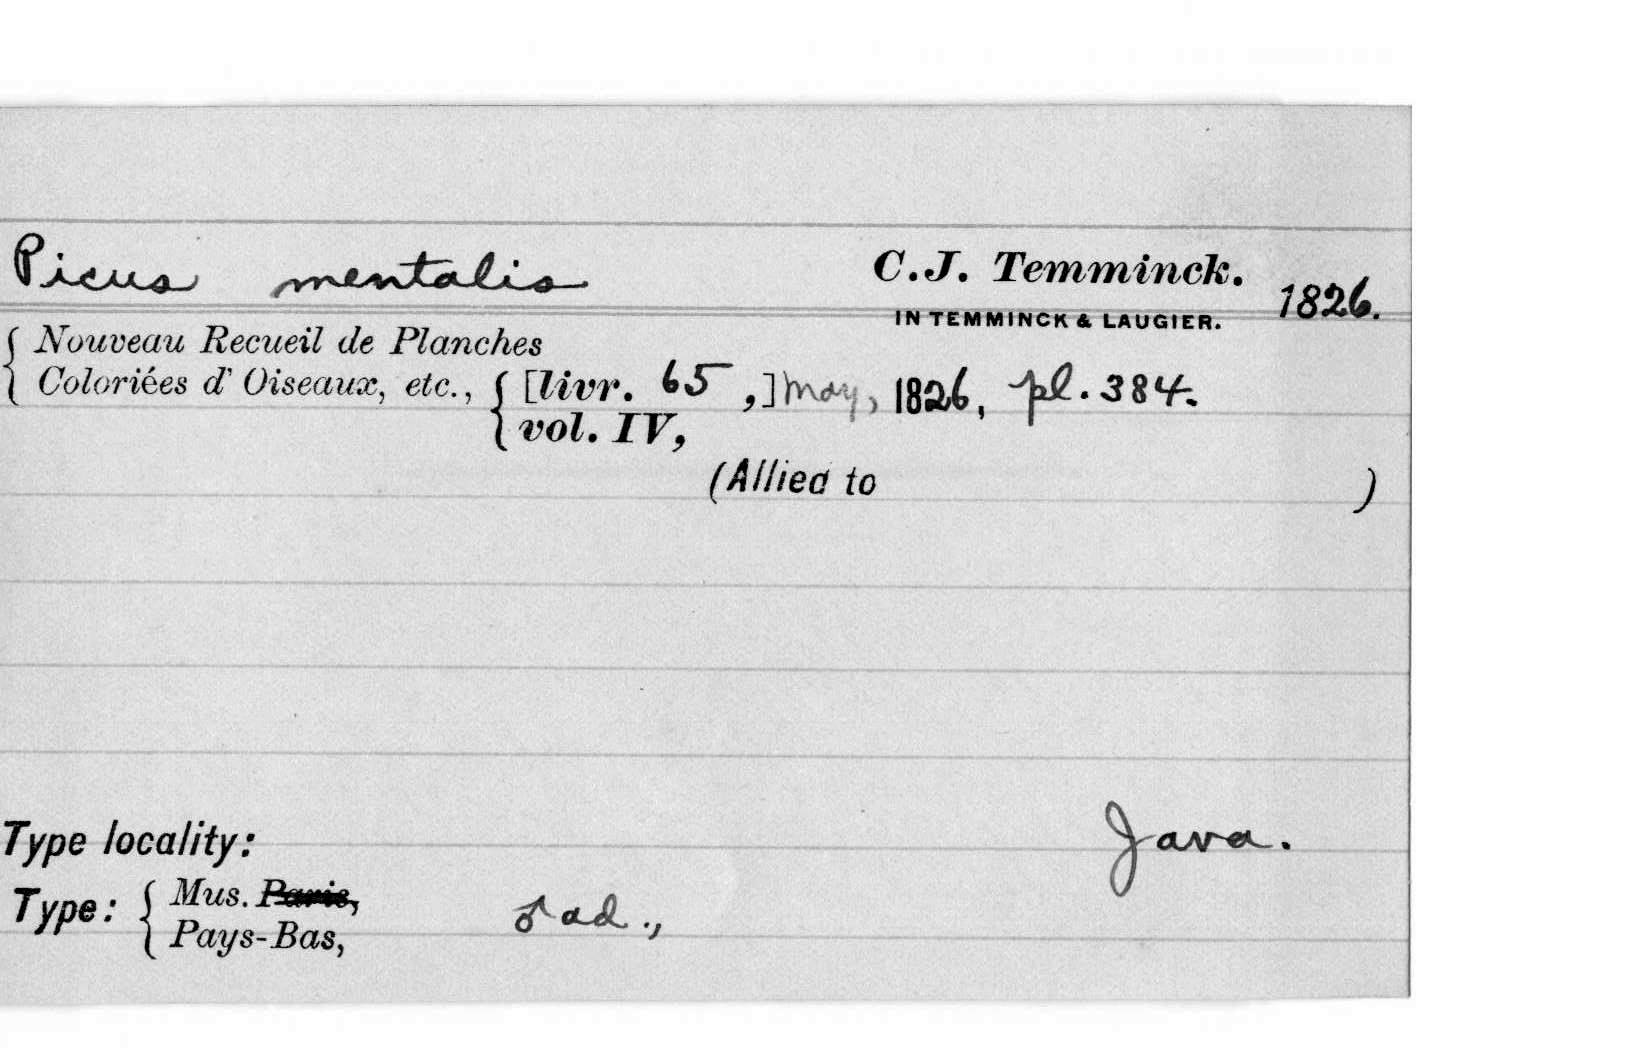 Picus mentalis C.J. Temminck. 1826.
IN TEMMINCK & LAUGIER.
Nouveau Recueil de Planches
Coloriées d'Oiseaux, etc., [livr. 65,] May, 1826, pl. 384.
vol. IV,
(Allied to )
Type locality: Java.
Type: Mus. Paris,
Pays-Bas, ♂ ad.,